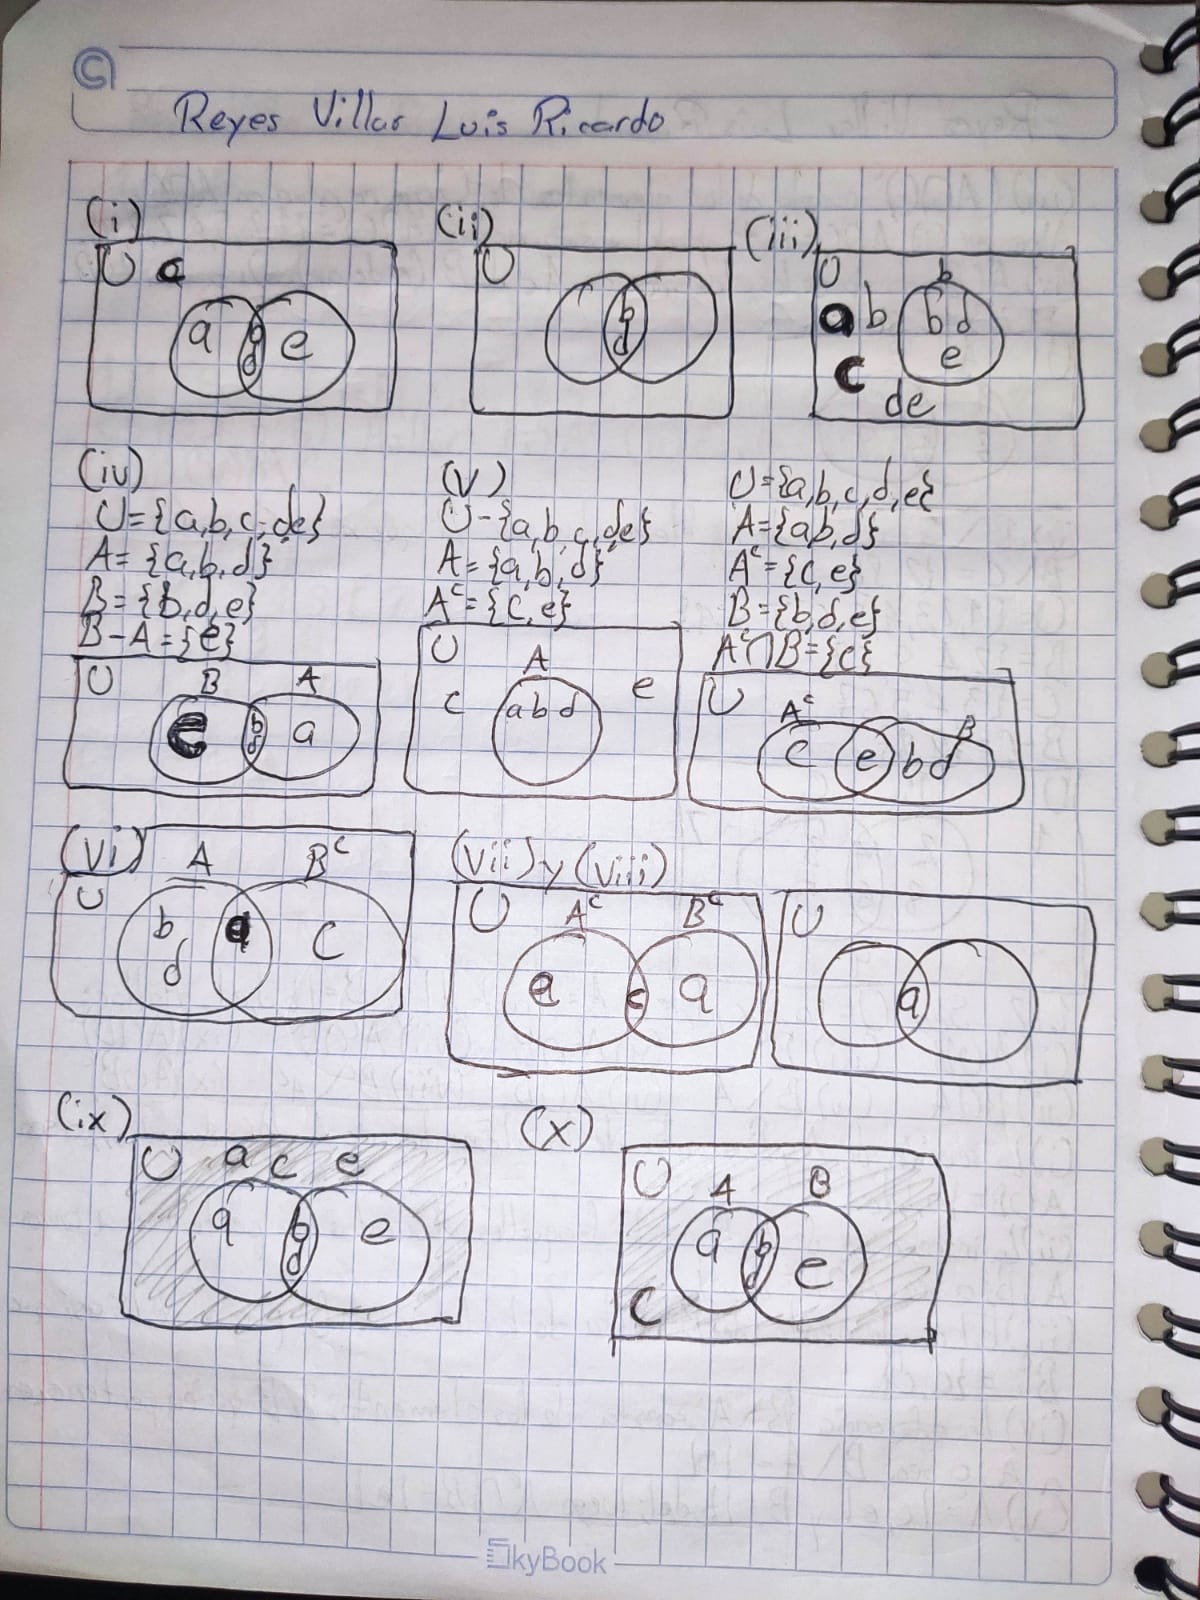 Reyes Villar Luis Ricardo
(i)
U c
a b d e
(ii)
U
b d
(iii)
U b
a b b d
e
c
de
(iv)
U={a,b,c,de}
A={a,b,d}
B={b,d,e}
B-A={e}
U B A
e b d a
(v)
U-{a,b,c,de}
A={a,b,d}
A^c={c,e}
U A
c a b d e
U={a,b,c,d,e}
A={ab,d}
A^c={c,e}
B={b,d,e}
A^c∩B={c}
U A^c B
c e b d
(vi)
A B^c
U
b d a c
(vii) y (viii)
U A^c B^c
e c a
U
a
(ix)
U a c e
a b d e
(x)
U A B
a b d e
c
SkyBook